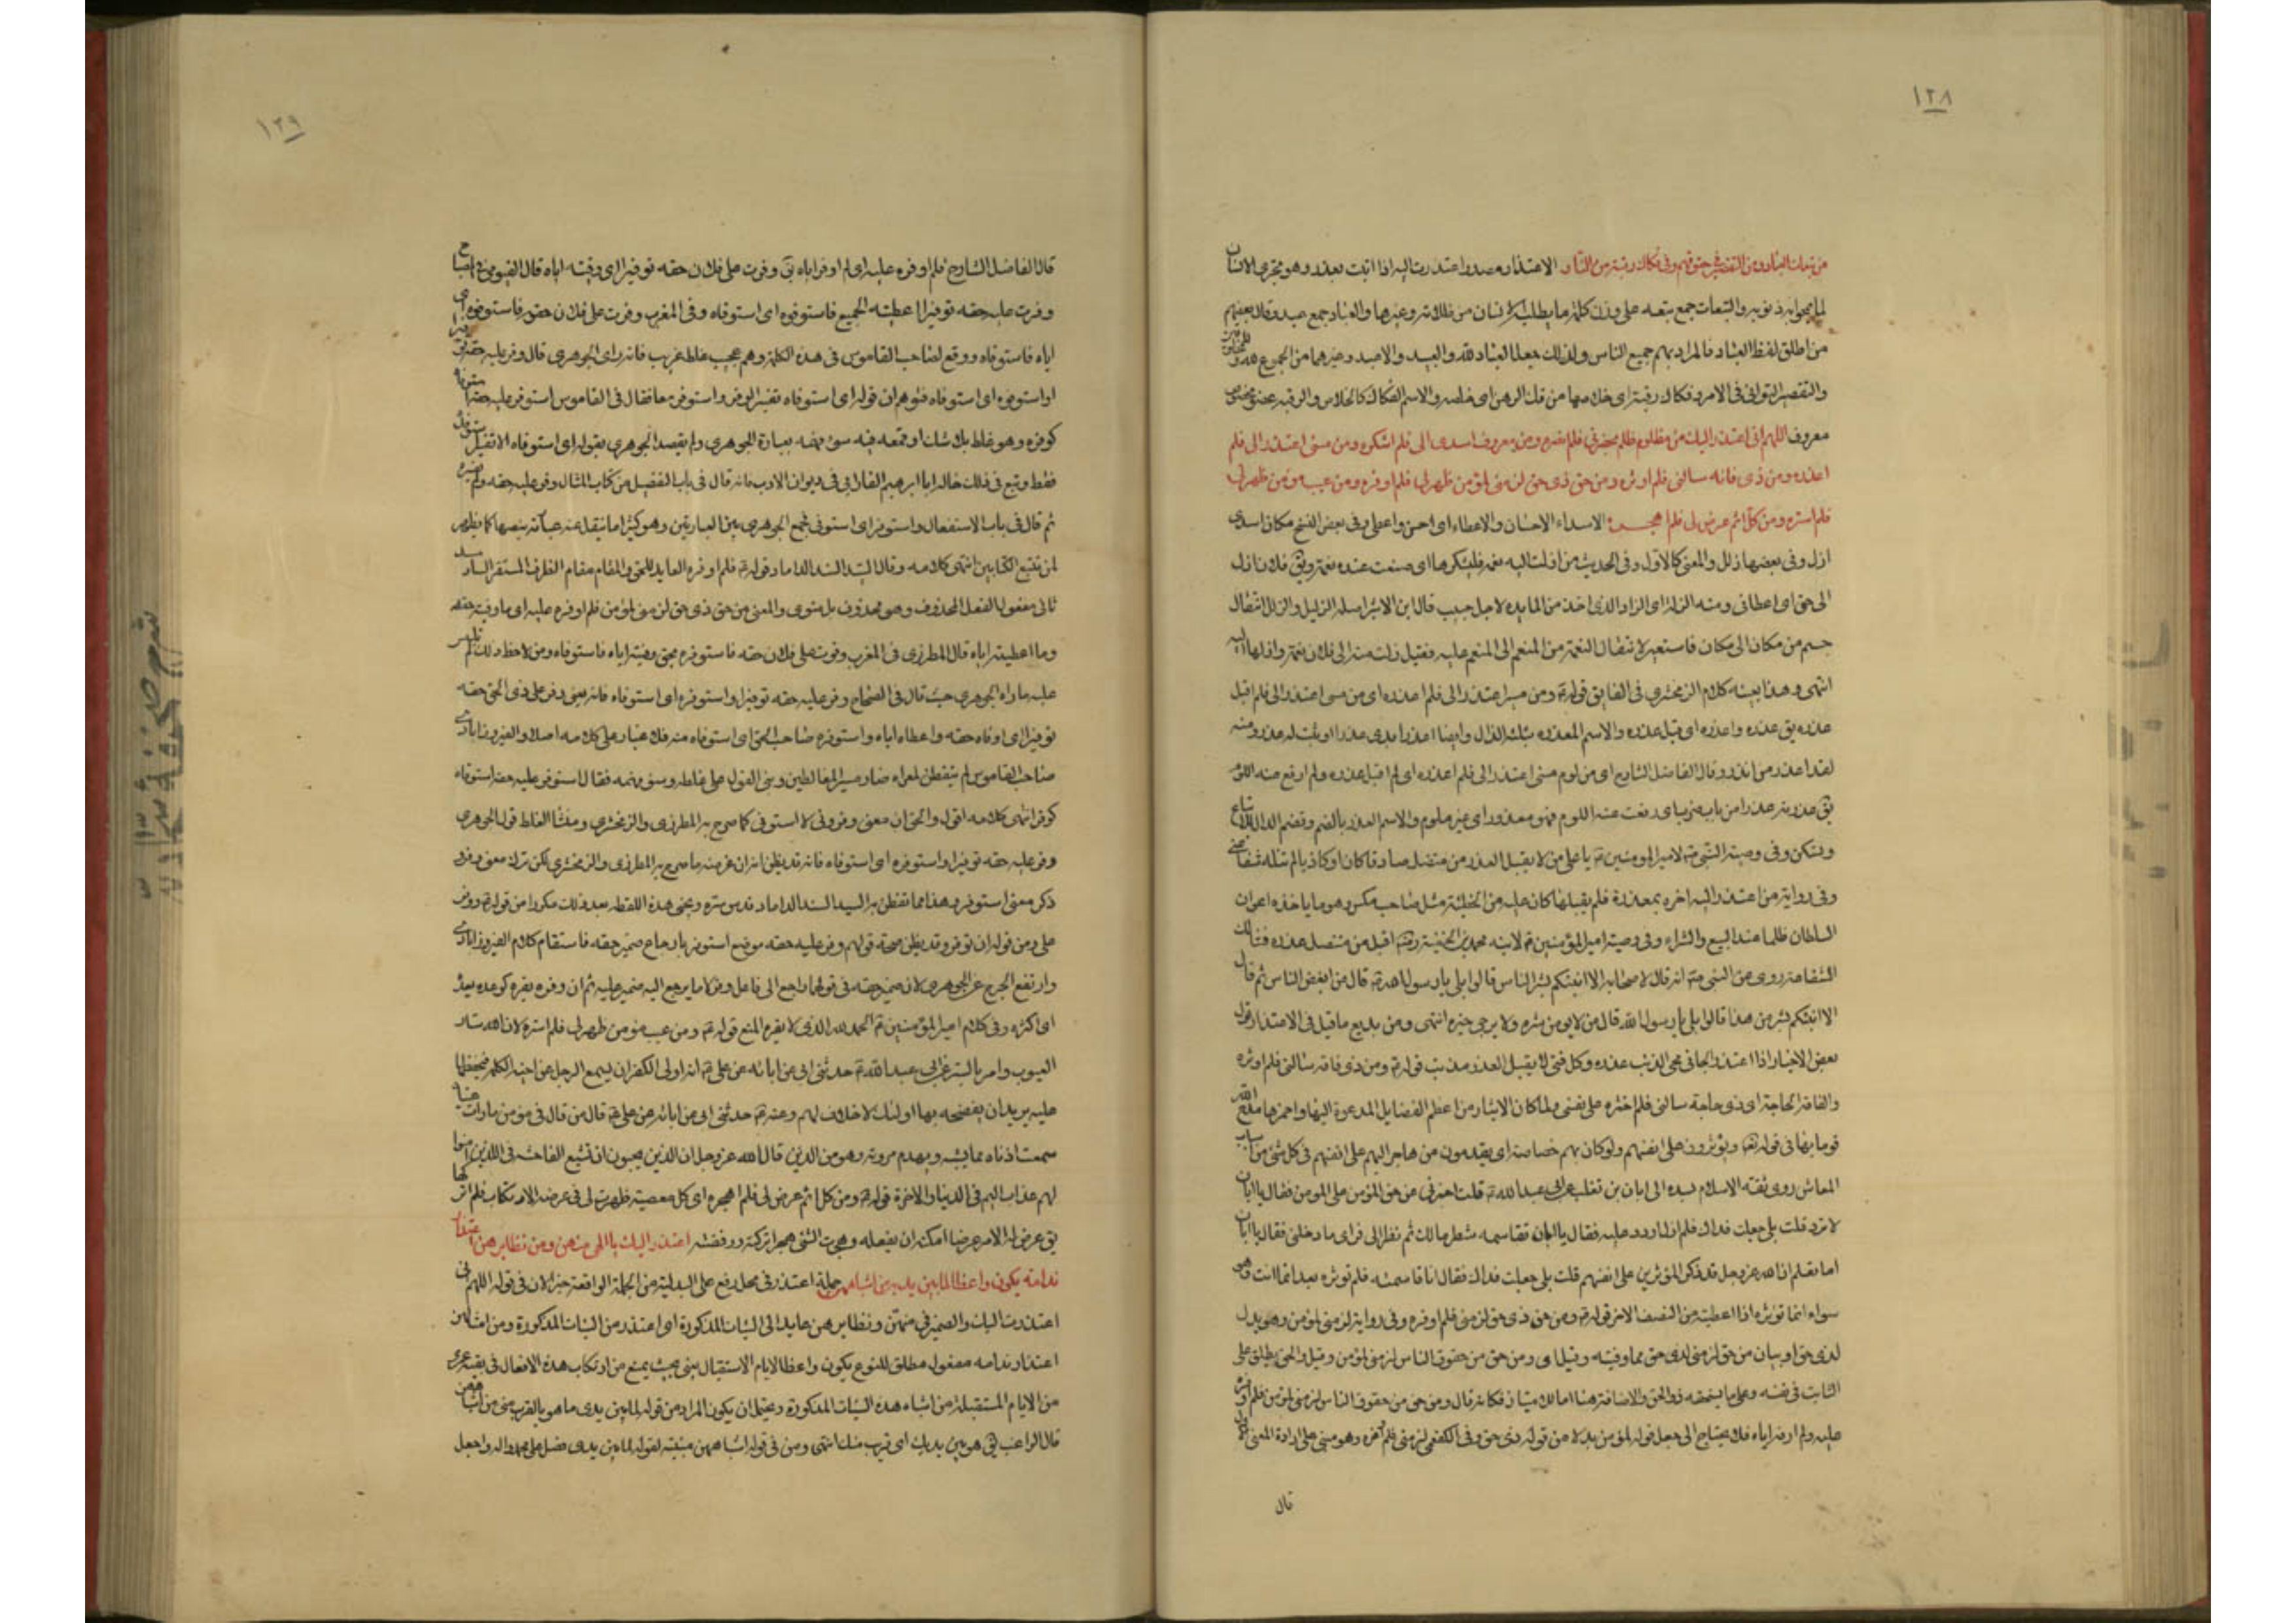 ١٢٨
من تبعات العباد ومن التقصير في حقوقهم وفي فكاك رقبته من النار الاعتذار مصدر اعتذرت اليه اذا اتيت بعذر وهو تحري الانسان
لما يمحو به ذنوبه والتبعات جمع تبعه على وزن كلمة ما يطلبه الانسان من ظلامته وغيرها والعباد جمع عبد وقال بعضهم
من اطلق لفظ العباد فالمراد بهم جميع الناس ولذلك جعل العباد لله والعبيد والاعبد وغيرهما من الجموع لله و
والتقصير التواني في الامر وفكاك رقبته اى خلاصها من فك الرهن اى خلصه والاسم الفكاك كالخلاص والرقبه عضو مخصوص
معروف اللهم انى اعتذر اليك من مظلوم ظلم بحضرتي فلم انصره ومن معروف اسدى الى فلم اشكره ومن مسئ اعتذر الى فلم
اعذره ومن ذى فاقه سالنى فلم اوثره ومن حق ذى حق لزمنى لمؤمن فلم اوفره ومن عيب مؤمن ظهر لى
فلم استره ومن كل اثم عرض لى فلم اهجره الاسداء الاحسان والاعطاء اى احسن واعطى وفى بعض النسخ مكان اسدى
ازل وفى بعضها زلل والمعنى كالاول وفى الحديث من ازلت اليه نعمه فليشكرها اى صنعت عنده نعمة
الى حق اى اعطانى ومنه الزلة اى الزاد الذى اخذ من المايده لاجل حبيب قال ابن الاثير اصله الزليل والزلل انتقال
جسم من مكان الى مكان فاستعير لانتقال النعمة من المنعم الى المنعم عليه فقيل زلت منه الى فلان نعمة وازلها اليه
انتهى وهذا بعينه كلام الزمخشرى فى الفايق قوله ومن مسئ اعتذر الى فلم اعذره اى من مسئ اعتذر الى فلم اقبل
عذره يق عذره واعذره اى قبل عذره والاسم المعذره بتثليث الذال وايضا اعذر ابدى عذرا او ثبت له عذر ومنه
لقد اعذر من انذر وقال الفاضل الشارح اى من لوم مسئ اعتذر الى فلم اعذره اى لم اقبل عذره ولم ارفع عنه اللوم
يق عذرته عذرا من باب ضرب اى رفعت عنه اللوم فهو معذور اى غير ملوم والاسم العذر بالضم وتضم الذال للاتباع
وتسكن وفى وصية النبى لامير المومنين يا على من لا يقبل العذر من متنصل صادقا كان او كاذبا لم تنله شفاعتى
وفى رواية من اعتذر اليه اخوه بمعذرة فلم يقبلها كان عليه من الخطيئة مثل صاحب مكس وهو ما ياخذه اعوان
السلطان ظلما عند البيع والشراء وفى وصية امير المؤمنين لابنه محمد بن الحنفية اقبل من متنصل عذره فتنالك
الشفاعة روى عن النبى انه قال لاصحابه الا انبئكم بشر الناس قالوا بلى يا رسول الله قال من ابغض الناس ثم قال
الا انبئكم بشر من هذا قالوا بلى يا رسول الله قال من لا يومن شره ولا يرجى خيره انتهى ومن بديع ما قيل فى الاعتذار قول
بعض الاخيار اذا اعتذر الجانى محى الذنب عذره وكل فتى لا يقبل العذر مذنب قوله ومن ذى فاقه سالنى فلم اوثره
والفاقة الحاجة اى ذى حاجة سالنى فلم اختره على نفسى ولما كان الايثار من اعظم الفضايل المدعوة اليها مدح الله
قوما بها فى قوله ويؤثرون على انفسهم ولو كان بهم خصاصة اى يقدمون من هاجر اليهم على انفسهم فى كل شئ من اسباب
المعاش روى ثقة الاسلام بسنده الى ابان بن تغلب عن ابى عبد الله قلت اخبرنى عن حق المؤمن على المومن فقال يا ابان
لا ترد قلت بلى جعلت فداك فلم ازل اردد عليه فقال يا ابان تقاسمه شطر مالك ثم نظر الى فراى ما دخلنى فقال يا ابان
اما تعلم ان الله عز وجل قد ذكر المؤثرين على انفسهم قلت بلى جعلت فداك فقال اذا قاسمته فلم توثره بعد انما انت وهو
سواء انما توثره اذا اعطيته من النصف الاخر قوله ومن حق ذى حق لزمنى فلم اوفره وفى رواية لزمنى لمؤمن وهو بدل
لذى حق او بيان من حق لزمنى لذى حق بما وفيته وقيل اى ومن حق من حقوق الناس لزمنى لمؤمن وقيل والحق يطلق على
الثابت فى نفسه وعلى ما يستحقه ذو الحق والاضافة هنا فكانه قال ومن حق من حقوق الناس لزمنى لمؤمن فلم اوفره
عليه ولم اوفه اياه فلا يحتاج الى جعل قوله لمؤمن بدلا من قوله ذى حق وفى الكفعمى لزمنى فلم اوفره وهو مبنى على ارادة المعنى الاول
قال
١٢٩
قال الفاضل الشارح فلم اوفره عليه اى لم اوفر اياه يق وفرت على فلان حقه توفيرا اى وفيته اياه قال الفيومى فى المصباح
وفرت عليه حقه توفيرا اعطيته الجميع فاستوفره اى استوفاه وفى المغرب وفرت على فلان حقه فاستوفره اى
اياه فاستوفاه ووقع لصاحب القاموس فى هذه الكلمة وهم عجيب غلط غريب فانه راى الجوهرى قال وفر عليه حقه توفيرا
او استوفره اى استوفاه فتوهم ان قوله اى استوفاه تفسير لوفر واستوفر معا فقال فى القاموس استوفر عليه حقه استوفاه
كوفره وهو غلط بلا شك اوقعه فيه سوء فهمه بعبارة الجوهرى ولم يقصد الجوهرى بقوله اى استوفاه الا تفسير استوفر
فقط وتبع فى ذلك خاله ابا ابراهيم الفارابى فى ديوان الادب فانه قال فى باب التفعيل من كتاب المثال وفر عليه حقه ولم يفسره
ثم قال فى باب الاستفعال واستوفر اى استوفى فجمع الجوهرى بين العبارتين وهو كثيرا ما ينقل عنه عباراته بنصها كما يظهر
لمن تتبع الكتابين انتهى كلامه وقال السيد السند الداماد قوله فلم اوفره العايد للحق والمقام مقام الظرف المستقر الساد
ثانى مفعولى الفعل المحذوف وهو محذوف بل منوى والمعنى من حق ذى حق لزمنى لمؤمن فلم اوفره عليه اى ما وفيته حقه
وما اعطيته اياه قال المطرزى فى المغرب وفرت على فلان حقه فاستوفره بمعنى وفيته اياه فاستوفاه ومن لاحظ ذلك ظهر
عليه ما راه الجوهرى حيث قال فى الصحاح وفر عليه حقه توفيرا واستوفره اى استوفاه فانه يعنى وفر على ذى الحق حقه
توفيرا اى اوفاه حقه واعطاه اياه واستوفره صاحب الحق اى استوفاه منه فلا غبار على كلامه اصلا والفيروزابادى
صاحب القاموس لم يتفطن لمغزاه فصار مسير المغالطين وبنى القول على غلطه وسوء فهمه فقال استوفر عليه حقه استوفاه
كوفر انتهى كلامه اقول والحق ان معنى وفر وفى لا استوفى كما صرح به المطرزى والزمخشرى ومنشا الغلط قول الجوهرى
وفر عليه حقه توفيرا واستوفره اى استوفاه فانه قد يظن ان غرضه ما صرح به المطرزى والزمخشرى لكن ترك معنى وفر و
ذكر معنى استوفر وهذا مما تفطن به السيد السند الداماد قدس سره ويجئ هذه اللفظه بعد ذلك مكررا من قوله ووفر
على ومن قوله ان توفر وقد يظن صحة قولهم وفر عليه حقه موضع استوفر بارجاع ضمير حقه فاستقام كلام الفيروزابادى
وارتفع الجرح عن الجوهرى لان ضمير حقه فى قولهما راجع الى فاعل وفر لا ما يرجع اليه ضمير عليه ثم ان وفره يفره كوعده يعده
اى اكثره وفى كلام امير المؤمنين الحمد لله الذى لا يفره المنع قوله ومن عيب مؤمن ظهر لى فلم استره لان الله ستار
العيوب وامر بالستر عن ابى عبد الله حدثنى ابى عن ابائه عن على انه اولى الكفر ان يسمع الرجل عن اخيه الكلمة فيحفظها
عليه يريد ان يفضحه بها اولئك لا خلاق لهم وعنه حدثنى ابى عن ابائه عن على قال من قال فى مؤمن ما رات عيناه
سمعت اذناه مما يشينه ويهدم مروته وهو من الذين قال الله عز وجل ان الذين يحبون ان تشيع الفاحشة فى الذين امنوا
لهم عذاب اليم فى الدنيا والاخرة قوله ومن كل اثم عرض لى فلم اهجره اى كل معصية ظهرت لى فى عرضة الارتكاب فلم اتركها
يق عرض له الامر عرضا امكنه ان يفعله وهجرت الشئ هجرا تركته ورفضته اعتذر اليك يا الهى منهن ومن نظايرهن اعتذار
ندامة يكون واعظا لما بين يدى من اشباههن جملة اعتذر فى محل رفع على البدلية من الجملة الواقعة خبرا لان فى قوله اللهم انى
اعتذرت اليك والضمير فى منهن ونظايرهن عايد الى السيئات المذكورة اى اعتذر من السيئات المذكورة ومن امثالهن
اعتذار ندامه مفعول مطلق للنوع يكون واعظا لايام الاستقبال بحيث يمنع من ارتكاب هذه الافعال فى بقيه عمرى
من الايام المستقبله من اشباه هذه السيئات المذكورة ويحتمل ان يكون المراد من قوله لما بين يدى ما هو بالقرب منى من اشباههن
قال الراغب يق هو بين يديك اى قريب منك انتهى ومن فى قوله من اشباههن مبينه لقوله لما بين يدى فصل على محمد واله واجعل